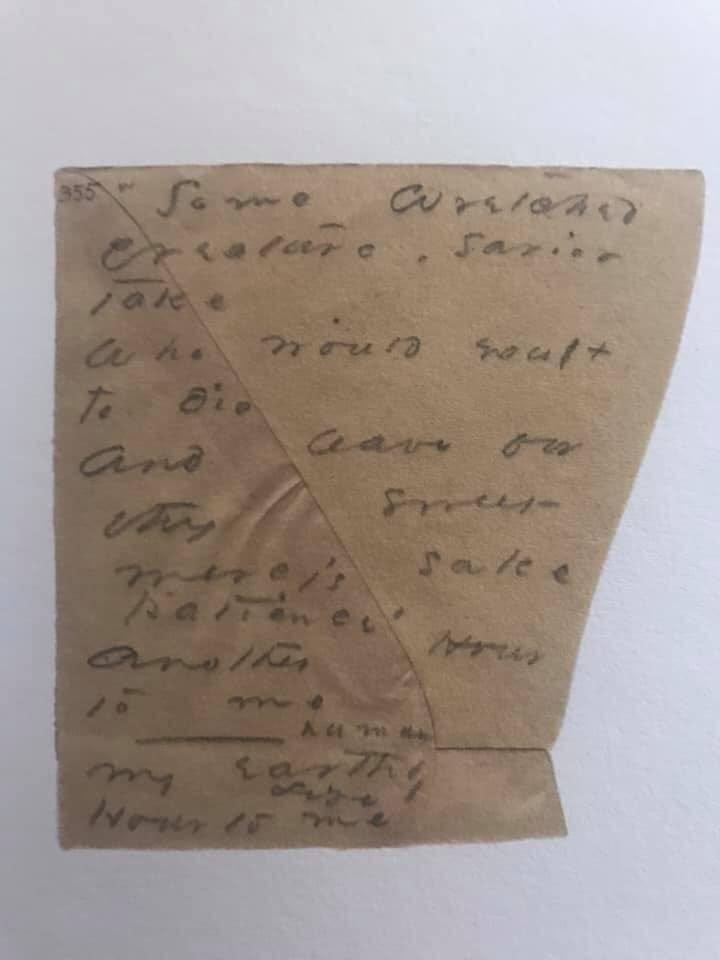 355
Some Wretched
creature, savior
take
Who would exult
to die
And leave for
thy sweet
mercy's sake
patience'
Another Hour
to me
human
my earthly
life
Hour to me